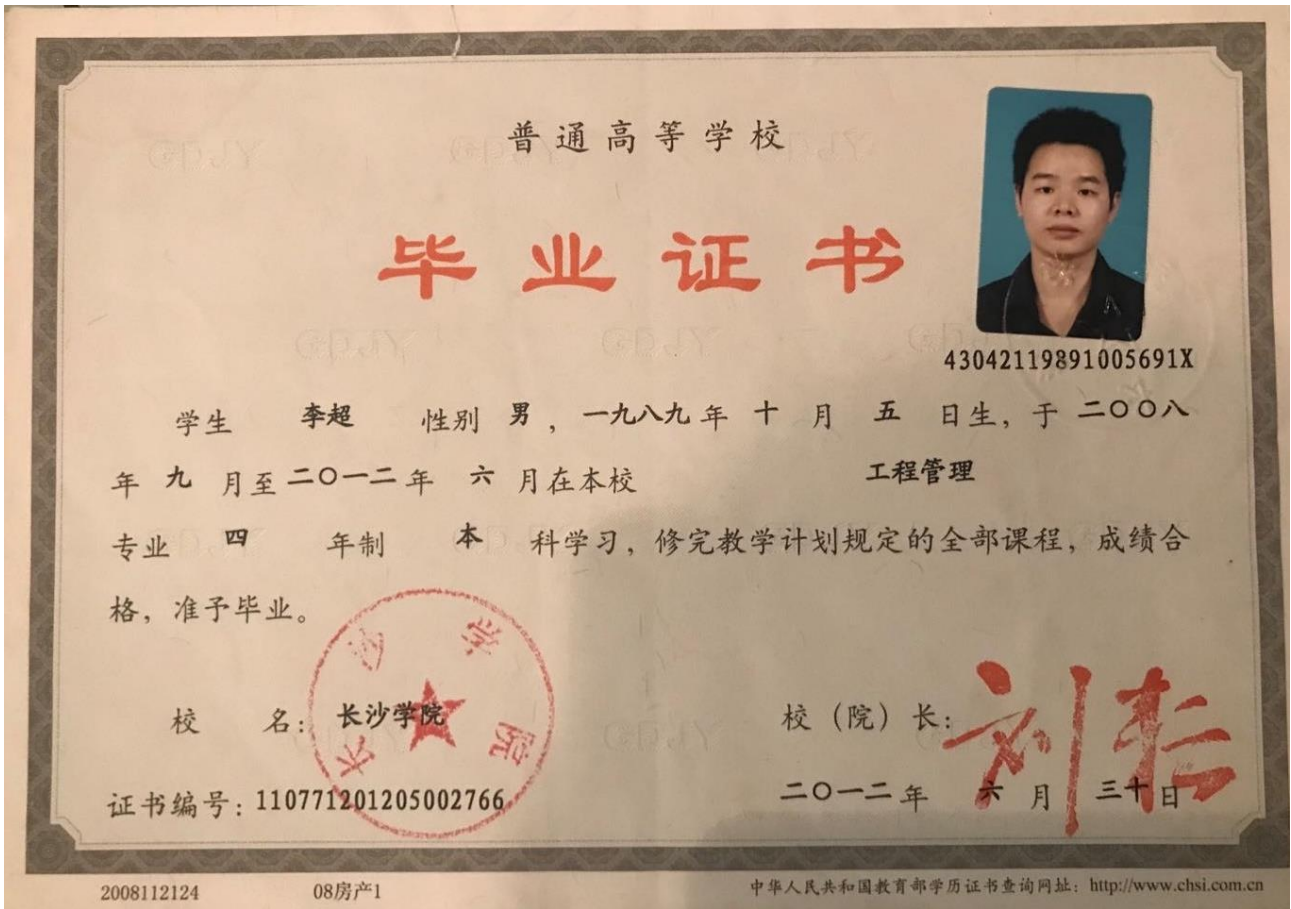 普通高等学校
毕业证书
43042119891005691X
学生 李超 性别 男，一九八九年 十 月 五 日生，于 二〇〇八
年 九 月至 二〇一二 年 六 月在本校 工程管理
专业 四 年制 本 科学习，修完教学计划规定的全部课程，成绩合
格，准予毕业。
长沙学院
校 名：长沙学院 校（院）长：
证书编号：110771201205002766 二〇一二 年 六 月 三十 日
2008112124 08房产1 中华人民共和国教育部学历证书查询网址：http://www.chsi.com.cn